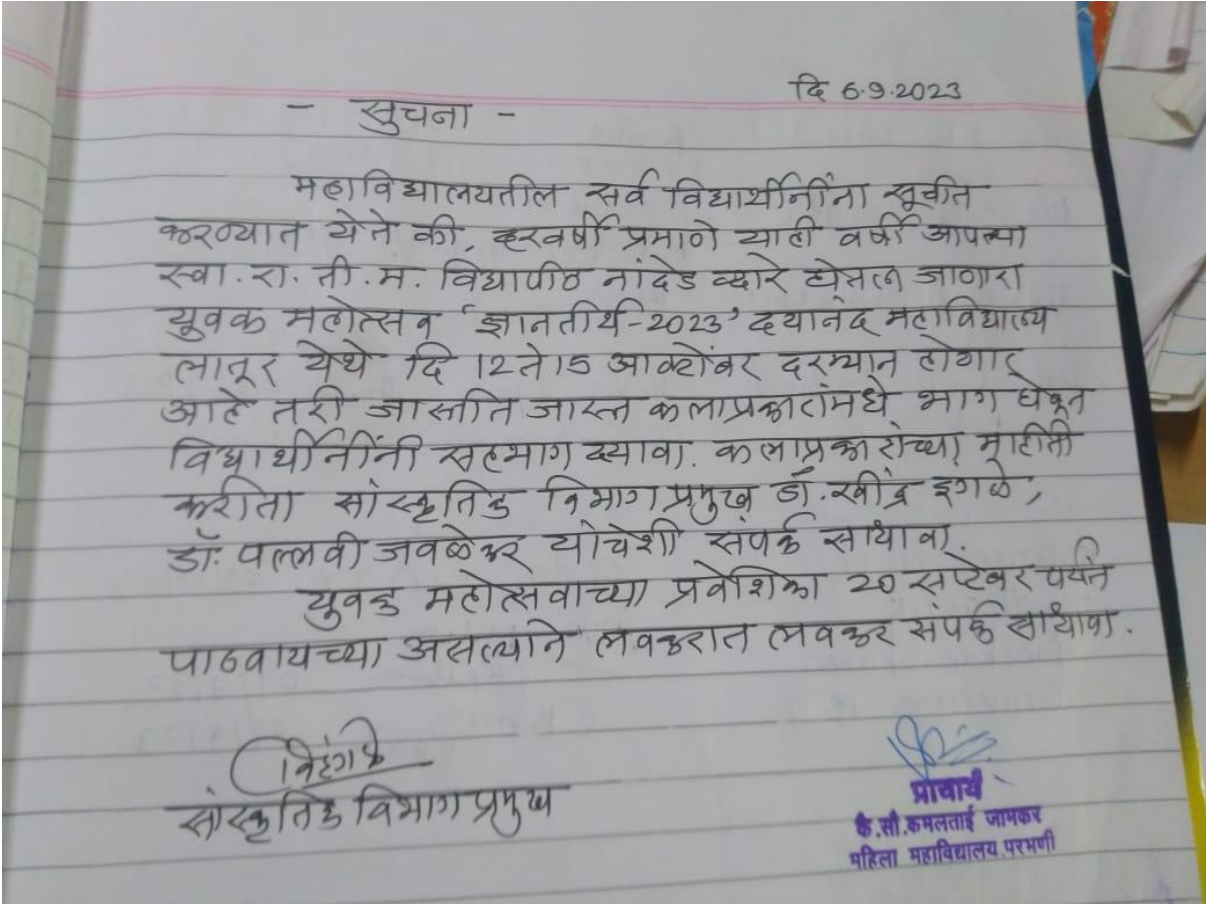 दि 6.9.2023
- सुचना -
महाविद्यालयतील सर्व विद्यार्थीनींना सूचीत
करण्यात येते की, दरवर्षी प्रमाणे याही वर्षी आपल्या
स्वा. रा. ती. म. विद्यापीठ नांदेड व्दारे घेतला जाणारा
युवक महोत्सव 'ज्ञानतीर्थ-2023' दयानंद महाविद्यालय
लातूर येथे दि 12 ते 15 आक्टोंबर दरम्यान होणार
आहे तरी जास्तीत जास्त कलाप्रकारांमधे भाग घेवून
विद्यार्थीनींनी सहभाग घ्यावा. कलाप्रकारांच्या माहिती
करीता सांस्कृतिक विभाग प्रमुख डॉ. रवींद्र इंगळे,
डॉ. पल्लवी जवळेकर यांचेशी संपर्क साधावा.
युवक महोत्सवाच्या प्रवेशिका 20 सप्टेंबर पर्यंत
पाठवायच्या असल्याने लवकरात लवकर संपर्क साधावा.
सांस्कृतिक विभाग प्रमुख
प्राचार्य
कै.सौ.कमलताई जामकर
महिला महाविद्यालय.परभणी